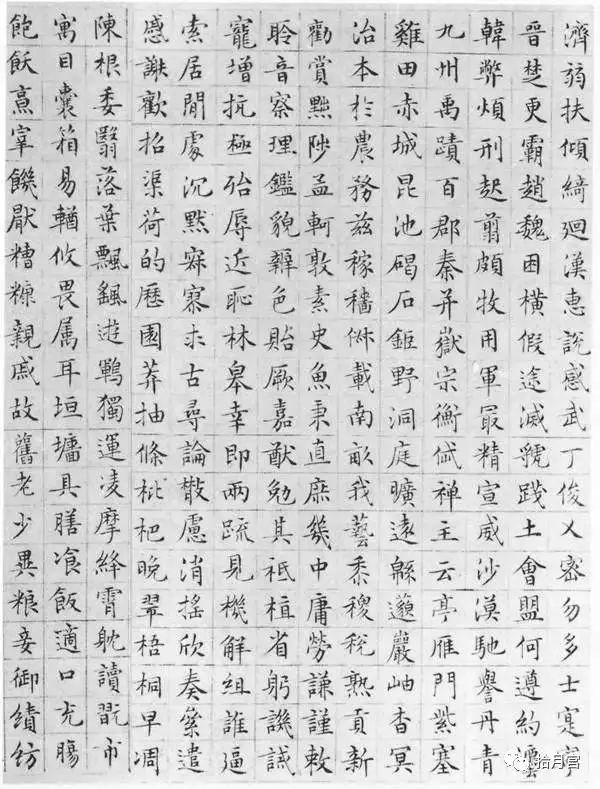 濟弱扶傾綺迴漢惠說感武丁俊乂密勿多士寔寧
晉楚更霸趙魏困橫假途滅虢踐土會盟何遵約灋
韓弊煩刑起翦頗牧用軍冣精宣威沙漠馳譽丹青
九州禹蹟百郡秦并嶽宗衡岱禪主云亭雁門紫塞
雞田赤城昆池碣石鉅野洞庭曠遠緜邈巖岫杳冥
治本於農務茲稼穡俶載南畝我藝黍稷稅熟貢新
勸賞黜陟孟軻敦素史魚秉直庶幾中庸勞謙謹敕
聆音察理鑑貌辨色貽厥嘉猷勉其祗植省躬譏誡
寵增抗極殆辱近恥林皋幸即兩疏見機解組誰逼
索居閒處沉默寂寥求古尋論散慮消搖欣奏累遣
感謝歡招渠荷的歷園莽抽條枇杷晚翠梧桐早凋
陳根委翳落葉飄颻遊鵾獨運凌摩絳霄耽讀翫市
寓目囊箱易輶攸畏属耳垣墻具膳飡飯適口充腸
飽飫烹宰饑厭糟糠親戚故舊老少異糧妾御績紡
拾月宫